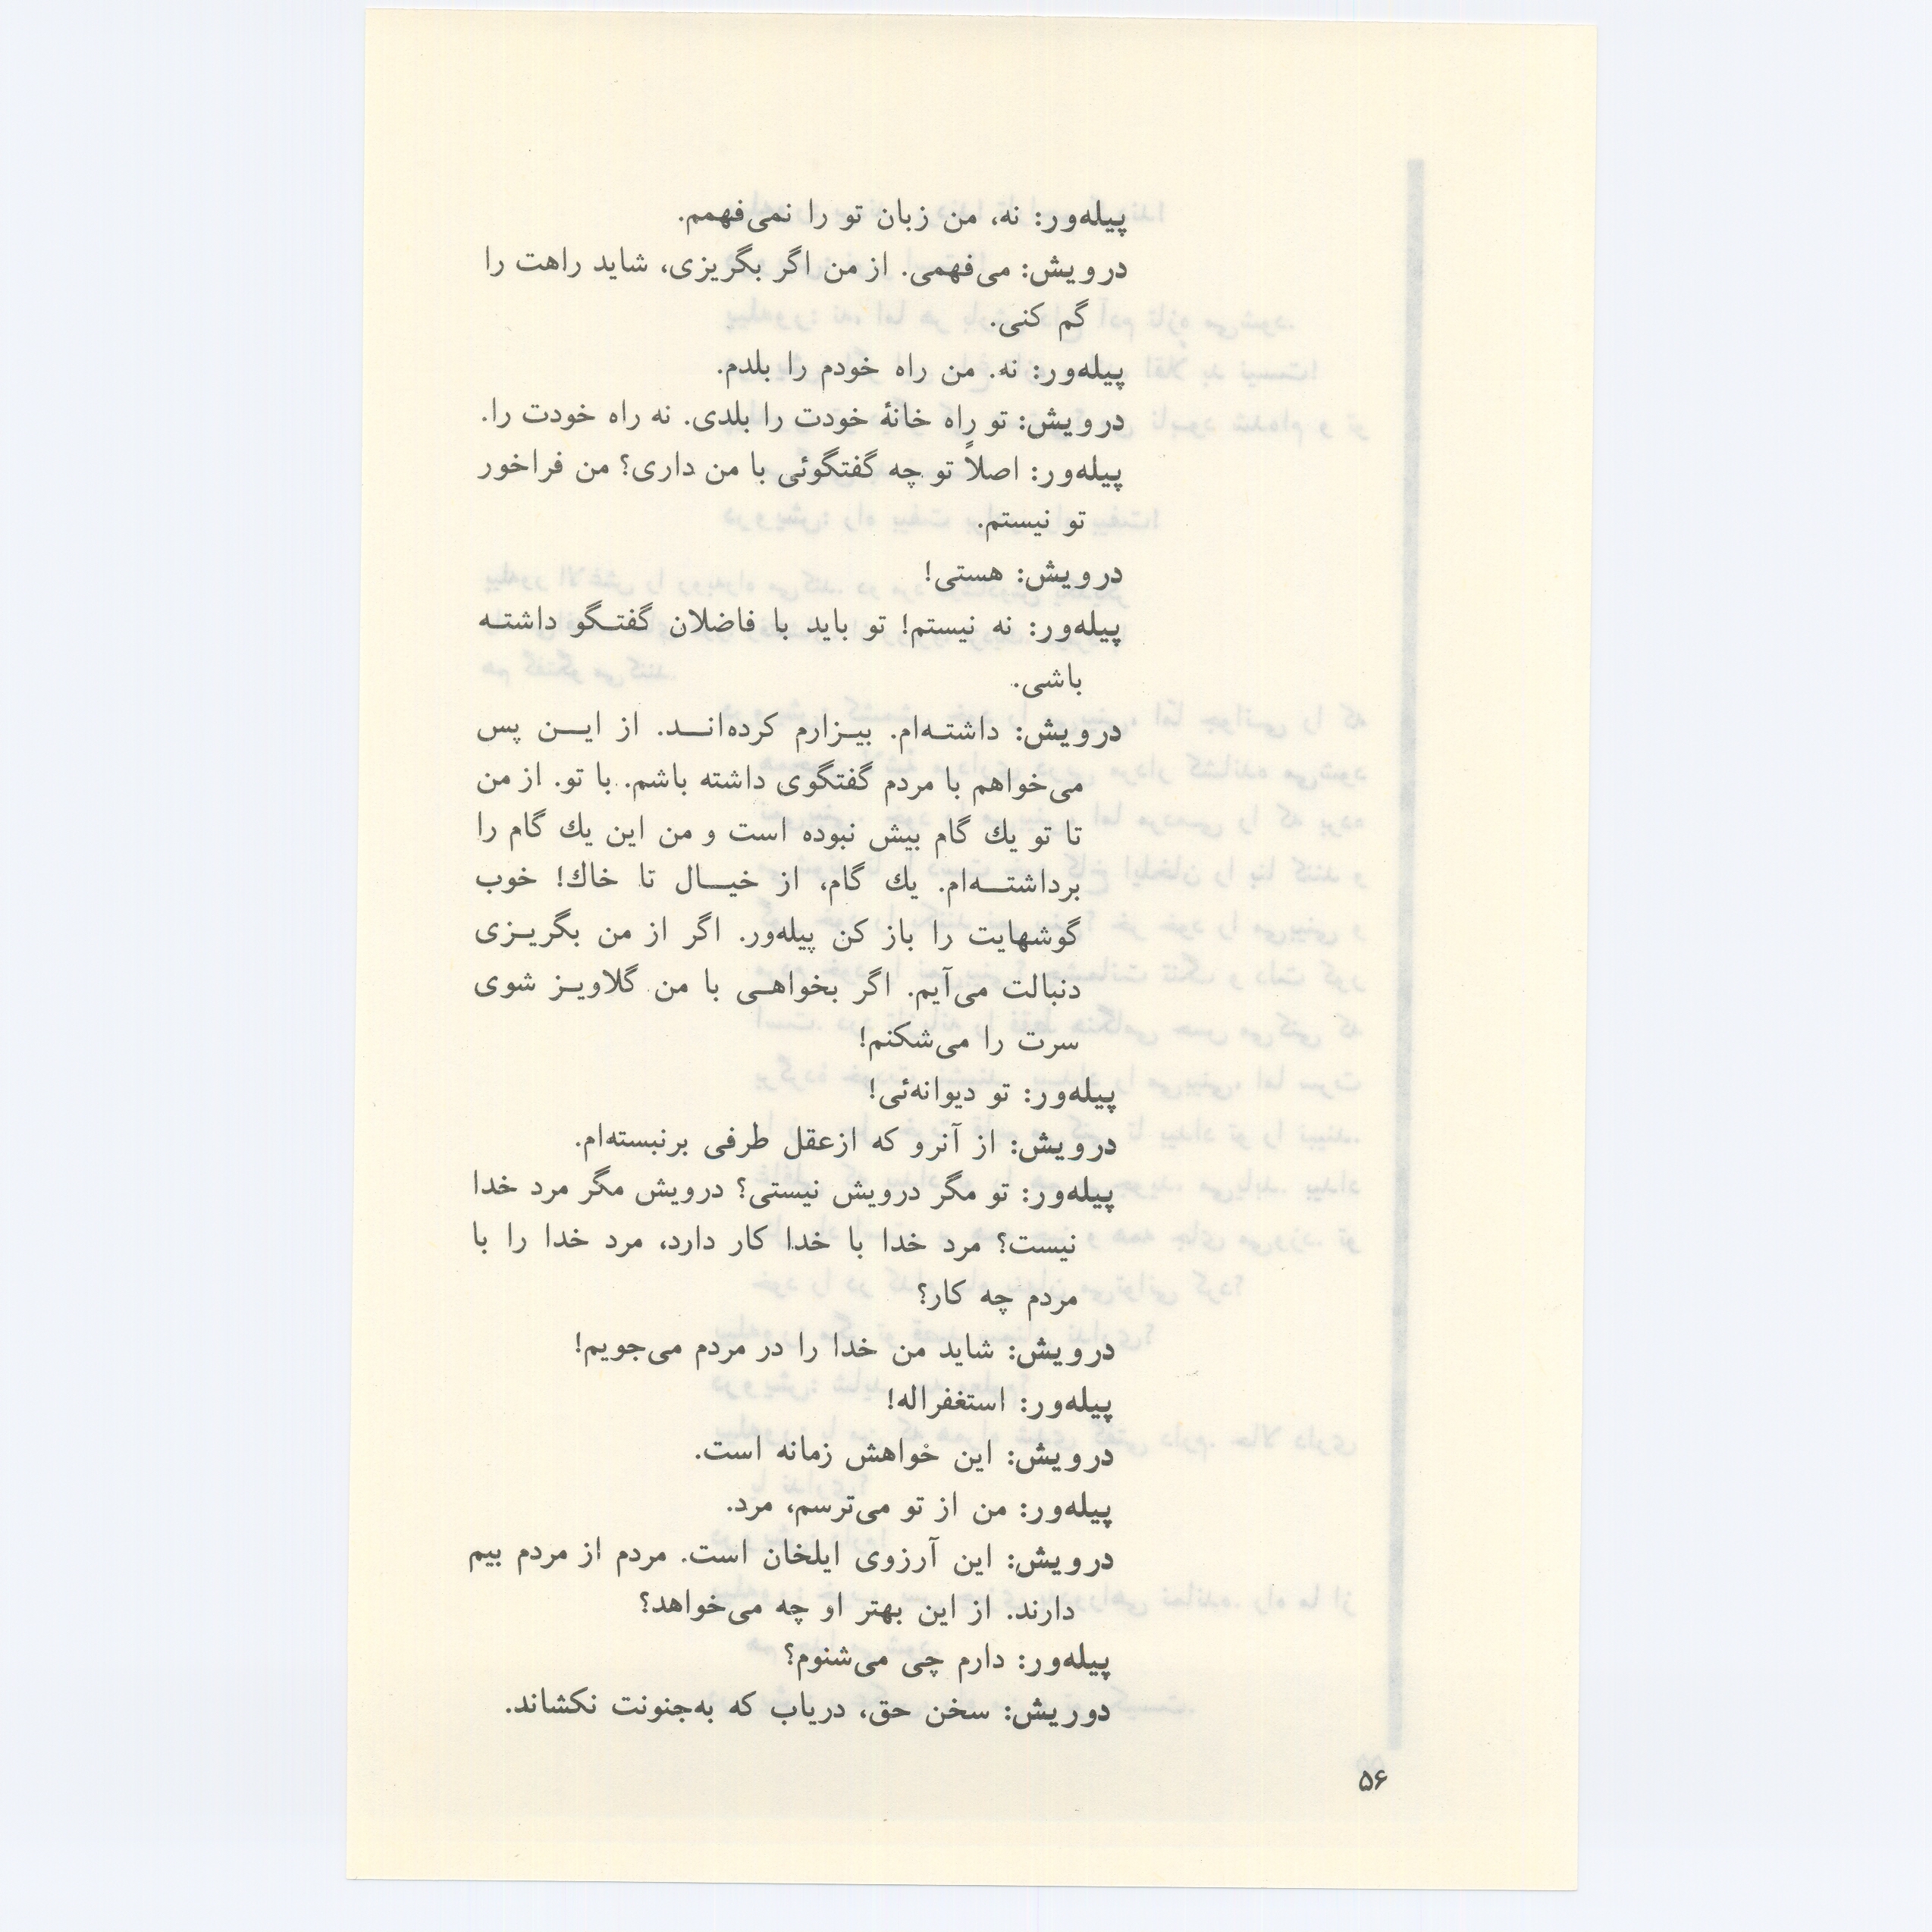 پیله‌ور: نه، من زبان تو را نمی‌فهمم.
درویش: می‌فهمی. از من اگر بگریزی، شاید راهت را
گم کنی.
پیله‌ور: نه. من راه خودم را بلدم.
درویش: تو راه خانهٔ خودت را بلدی. نه راه خودت را.
پیله‌ور: اصلاً تو چه گفتگوئی با من داری؟ من فراخور
تو نیستم.
درویش: هستی!
پیله‌ور: نه نیستم! تو باید با فاضلان گفتـگو داشتـه
باشی.
درویش: داشتـه‌ام. بیـزارم کرده‌انــد. از ایــن پس
می‌خواهم با مردم گفتگوی داشته باشم. با تو. از من
تا تو يك گام بیش نبوده است و من این يك گام را
برداشتــه‌ام. يك گام، از خیــال تا خاك! خوب
گوشهایت را باز کن پیله‌ور. اگر از من بگریـزی
دنبالت می‌آیم. اگر بخواهـی با من گلاویـز شوی
سرت را می‌شکنم!
پیله‌ور: تو دیوانه‌ئی!
درویش: از آنرو که ازعقل طرفی برنبسته‌ام.
پیله‌ور: تو مگر درویش نیستی؟ درویش مگر مرد خدا
نیست؟ مرد خدا با خدا کار دارد، مرد خدا را با
مردم چه کار؟
درویش: شاید من خدا را در مردم می‌جویم!
پیله‌ور: استغفراله!
درویش: این خواهش زمانه است.
پیله‌ور: من از تو می‌ترسم، مرد.
درویش: این آرزوی ایلخان است. مردم از مردم بیم
دارند. از این بهتر او چه می‌خواهد؟
پیله‌ور: دارم چی می‌شنوم؟
دوریش: سخن حق، دریاب که به‌جنونت نکشاند.
۵۶